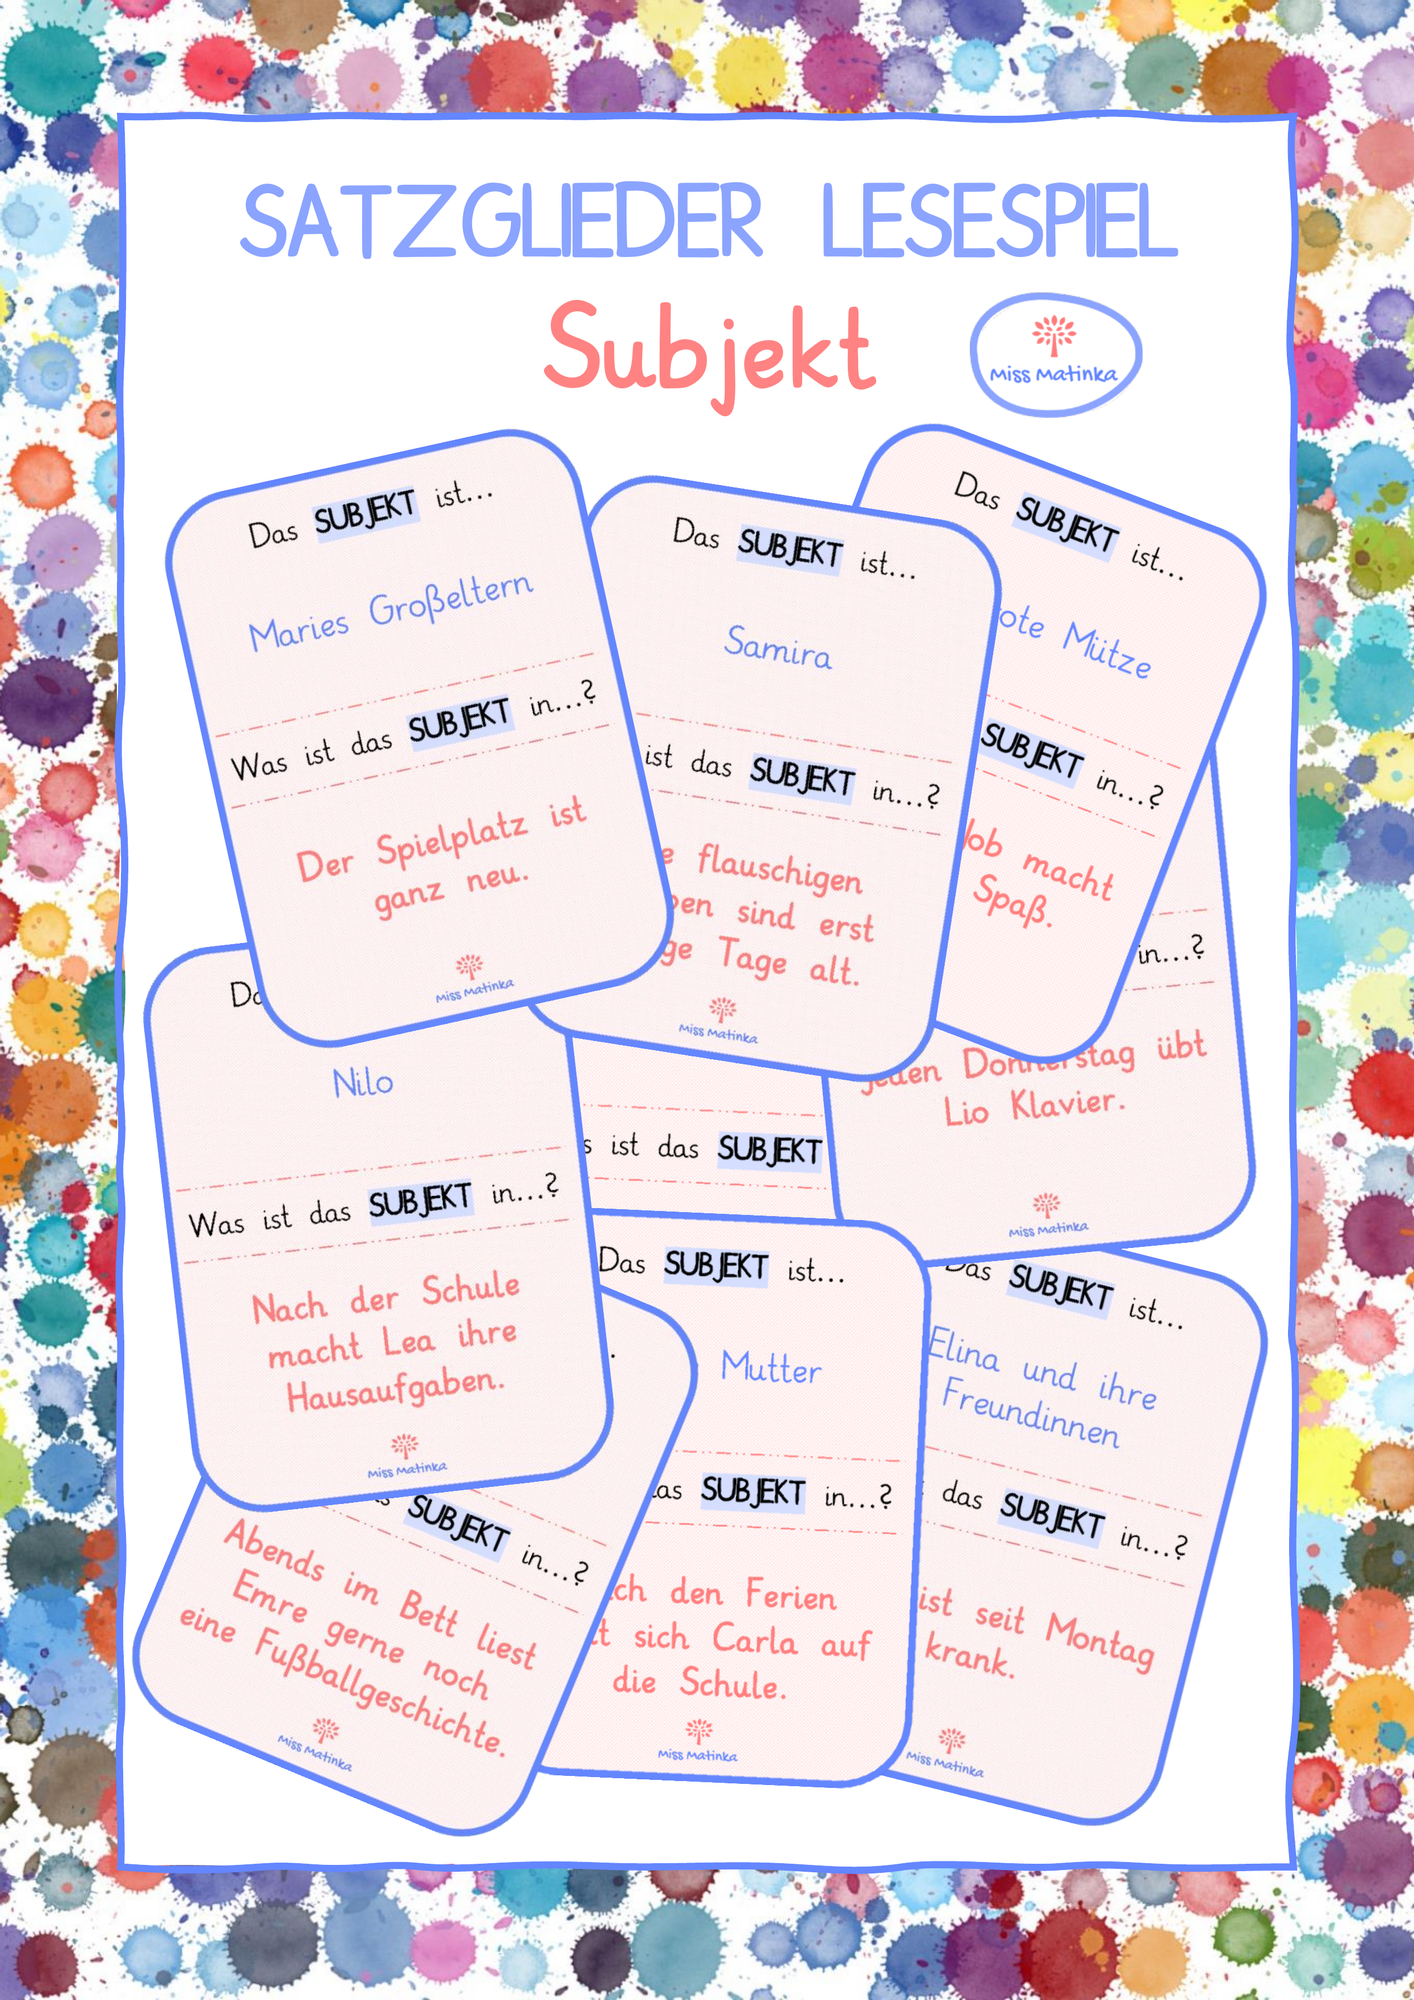 SATZGLIEDER LESESPIEL
Subjekt
Miss Matinka
Das SUBJEKT ist...
Maries Großeltern
Was ist das SUBJEKT in...?
Der Spielplatz ist
ganz neu.
Miss Matinka
Das SUBJEKT ist...
Samira
ist das SUBJEKT in...?
flauschigen
sind erst
Tage alt.
Miss Matinka
Das SUBJEKT ist...
Mütze
SUBJEKT in...?
Job macht
Spaß.
in...?
jeden Donnerstag übt
Lio Klavier.
Miss Matinka
Nilo
Was ist das SUBJEKT in...?
Nach der Schule
macht Lea ihre
Hausaufgaben.
Miss Matinka
ist das SUBJEKT
Das SUBJEKT ist...
Mutter
das SUBJEKT in...?
den Ferien
sich Carla auf
die Schule.
Miss Matinka
Das SUBJEKT ist...
Elina und ihre
Freundinnen
das SUBJEKT in...?
ist seit Montag
krank.
Miss Matinka
SUBJEKT in...?
Abends im Bett liest
Emre gerne noch
eine Fußballgeschichte.
Miss Matinka